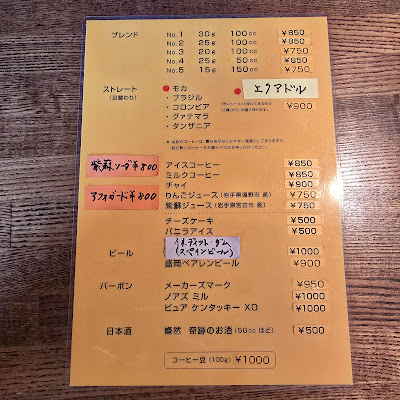 ブレンド No.1 30g 100cc ¥850
No.2 25g 100cc ¥850
No.3 25g 100cc ¥750
No.4 25g 50cc ¥850
No.5 15g 150cc ¥750
ストレート ●モカ ● エクアドル
(日替わり) ・ブラジル
・コロンビア ¥900
・グァテマラ
・タンザニア
紫蘇ソーダ ¥800
アフォガード ¥800
アイスコーヒー ¥850
ミルクコーヒー ¥850
チャイ ¥900
りんごジュース (岩手県遠野市 産) ¥750
紫蘇ジュース (岩手県宮古市 産) ¥750
チーズケーキ ¥500
バニラアイス ¥500
ビール (スペインビール) ¥1000
盛岡ベアレンビール ¥900
バーボン メーカーズマーク ¥950
ノアズ ミル ¥1000
ピュア ケンタッキー XO ¥1000
日本酒 燦然 奇跡のお酒 (50cc ほど) ¥500
コーヒー豆 (100g) ¥1000